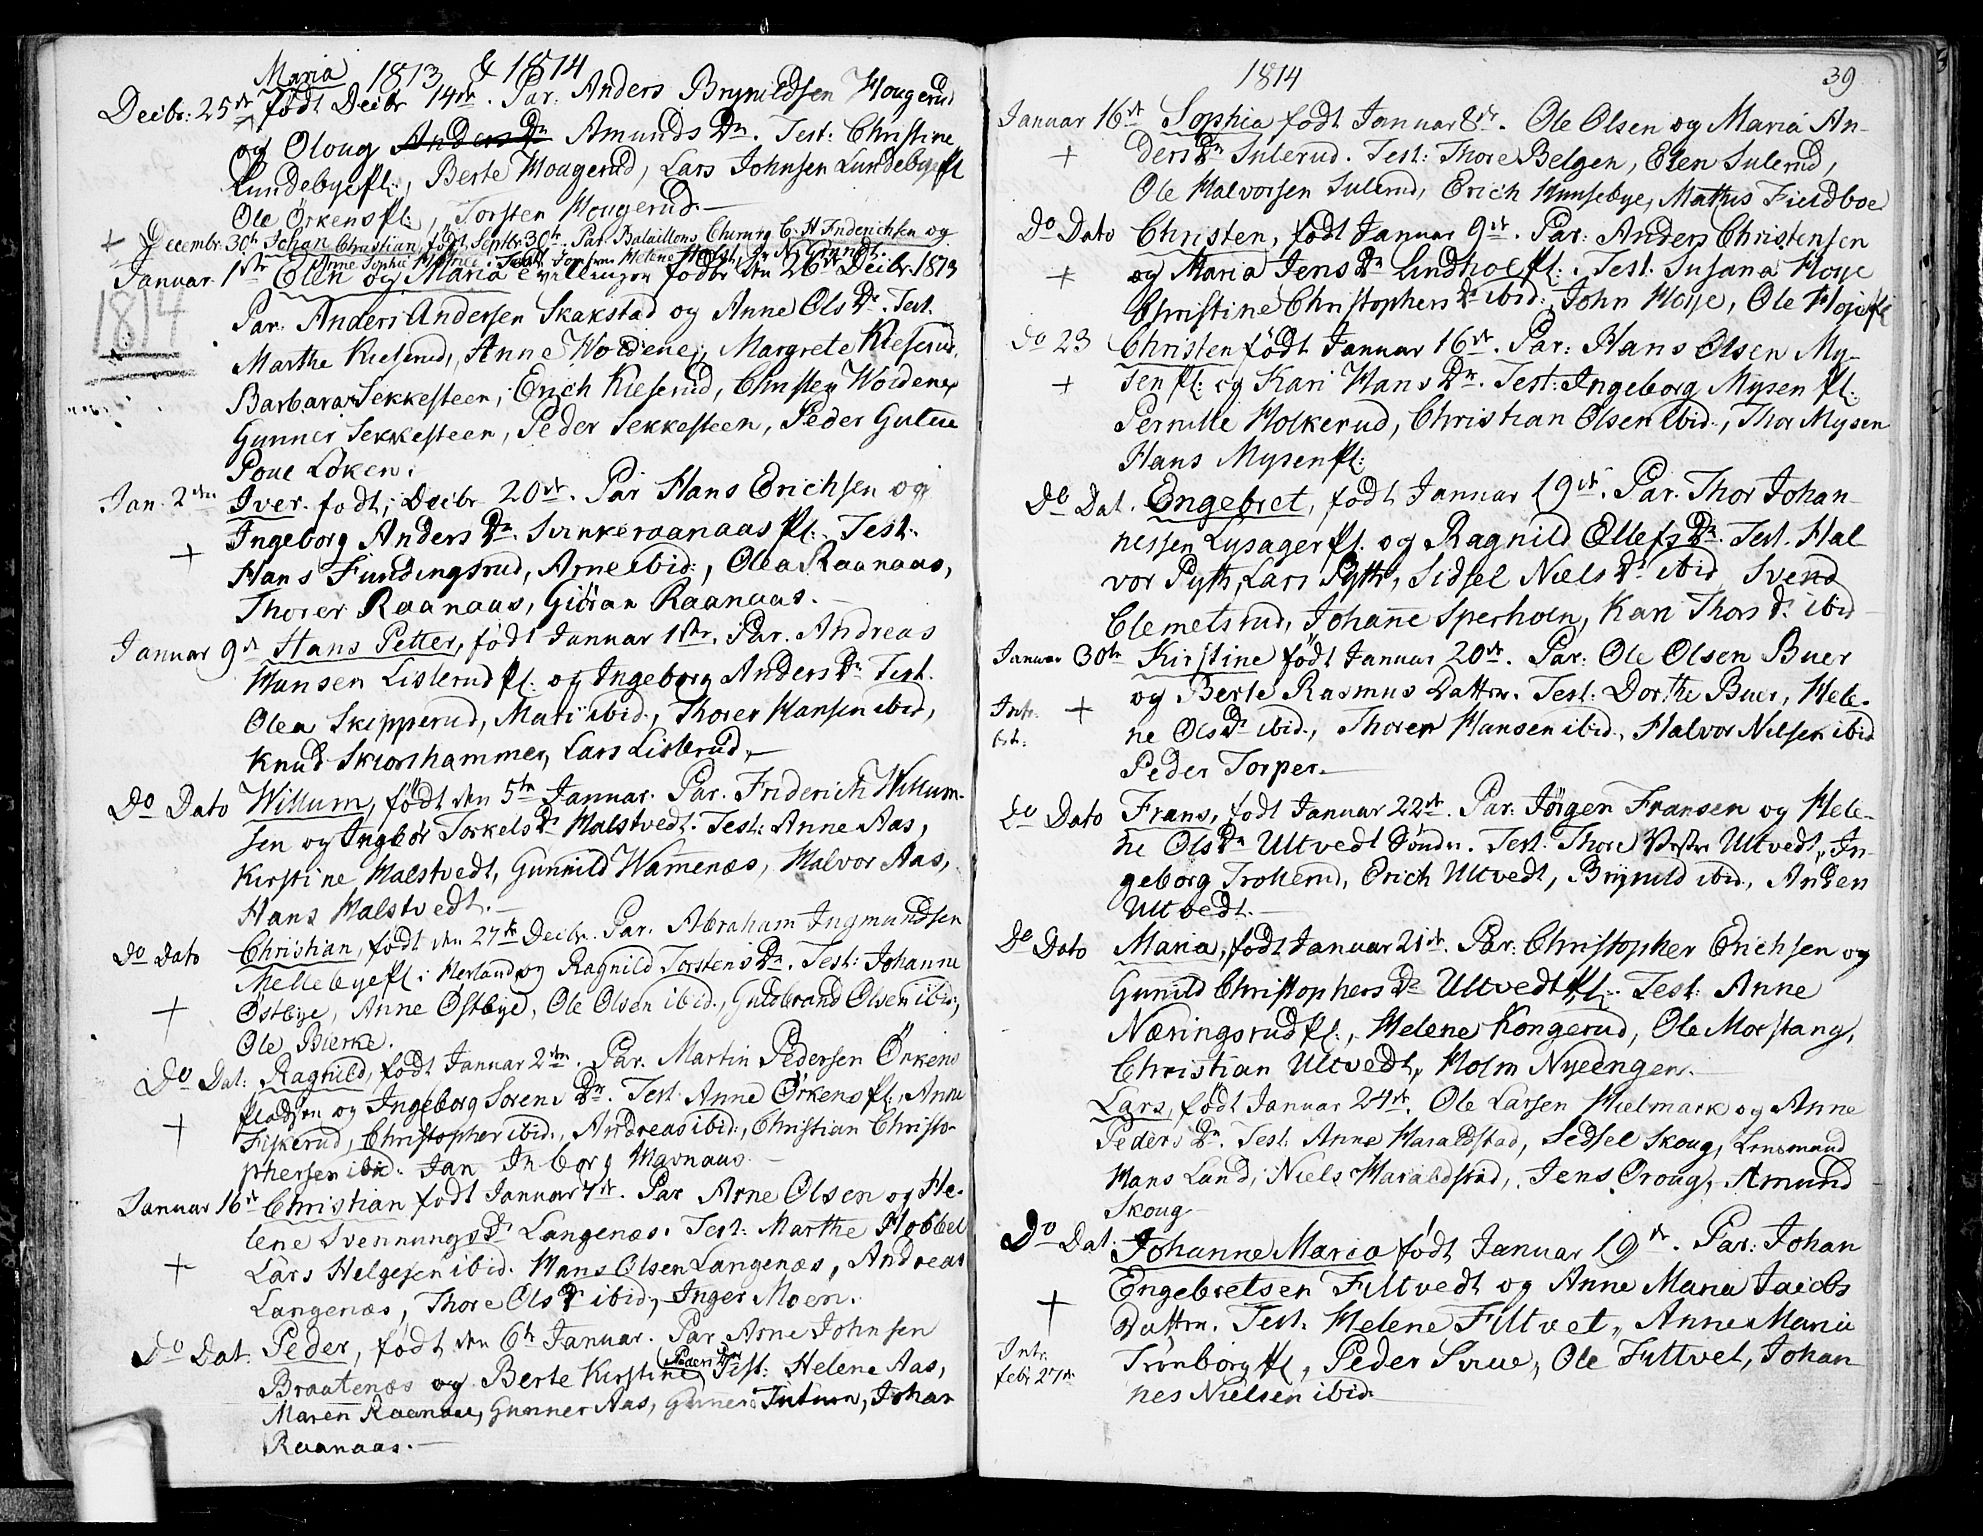 1813 & 1814
Maria
Decibr: 25de født Decibr 14de. Par: Anders Brynildsen Hougerud
og Oloug Anders Dr Amunds Dr. Test: Christine
Lundebye Pl:, Berte Hougerud, Lars Johnsen Lundebye Pl
Ole Örkens Pl:, Torsten Hougerud.—
+ Decembr. 30te Johan Christian, født Septbr 30te. Par. Bataillons Chirurg C. H. Friderichsen og
Anne Sophie
Januar 1ste Elen og Maria tvillinger fødde den 26de Decbr. 1813
1814
Par: Anders Andersen Skakstad og Anne Ols Dr. Test.
Marthe Kieserud, Anne Woidene, Margrete Kieserud,
Barbara Sekkesteen, Erich Kieserud, Christen Woidene,
Gunner Sekkesteen, Peder Sekkesteen, Peder Gutue
Poue Löken.
Jan. 2den Iver. født, Decibr 20de. Par Hans Erichsen og
Ingeborg Anders Dr. Svinkeraanaas Pl:. Test:
+ Hans Fundingsrud, Arne ibid:, Olea Raanaas,
Thorer Raanaas, Giöran Raanaas.—
Januar 9de Hans Petter, født Januar 1ste. Par. Andreas
Hansen Lislerud Pl. og Ingeborg Anders Dr. Test.
Olea Skipperud, Mari ibid., Thorer Hansen ibid,
Knud Skiorshammer, Lars Lislerud.—
Do Dato Willum, født den 5te Januar. Par. Friderich Willum-
sen og Ingbör Torkels Dr Halstvedt. Test: Anne Aas,
Kirstine Halstvedt, Gunnild Wamenæs, Halvor Aas,
Hans Halstvedt.—
Do Dato Christian, født den 27de Decbr. Par. Abraham Ingmundsen
Mellebye Pl: Herland og Ragnild Torstens Dr. Test: Johanne
+ Østbye, Anne Østbye, Ole Olsen ibid., Guldbrand Olsen ibid:,
Ole Bierke.
Do Dat: Ragnild, født Januar 2den. Par. Martin Pedersen Örkens
Pladsen og Ingeborg Sörens Dr. Test Anne Örkens Pl:, Anne
+ Fiskerud, Christopher ibid., Andreas ibid:, Christian Christo-
phersen ibid. Jan Inborg Mavnaas.—
Januar 16de Christian født Januar 7de. Par Arne Olsen og He-
lene Svennungs Dr Langenæs. Test: Marthe Hobbel
+ Lars Helgesen ibid. Hans Olsen Langenæs, Andreas
Langenæs, Thore Ols Dr ibid, Inger Moen.
Do Dat: Peder, født den 6te Januar. Par Arne Johnsen
Braatenæs og Berte Kirstine Peders Dr Test: Helene Aas,
Maren Raanaas, Gunner Aas, Gunner Tuturn, Johan
Raanaas.—
1814
39
Januar 16de Sophia født Januar 8de. Ole Olsen og Maria An-
+ ders Dr Sulerud. Test: Thore Belgen, Elen Sulerud,
Ole Halvorsen Sulerud, Erich Hunsebye, Mathis Fieldboe
Do Dato Christen, født Januar 9de. Par: Anders Christensen
+ og Maria Jens Dr Lindhoe Pl:. Test. Susana Hoye
Christine Christophers Dr ibid:, John Hoye, Ole Hoje Pl
Do 23 Christen født Januar 16de. Par: Hans Olsen My-
+ sen Pl: og Kari Hans Dr. Test: Ingeborg Mysen Pl:
Pernille Holkerud, Christian Olsen ibid., Thor Mysen
Hans Mysen Pl:
Do Dat. Engebret, født Januar 19de. Par. Thor Johan-
nessen Lysager Pl. og Ragnild Ellefs Dr. Test. Hal
vor Pyth, Lars Pyth, Sidsel Niels Dr ibid, Svend
Clemetsrud, Johanne Sperhoen, Kari Thors Dr. ibid
Januar 30te Kirstine født Januar 20de. Par: Ole Olsen Buer
Intr. + og Berte Rasmus Dattrn. Test: Dorthe Buer, Hele-
ne Ols Dr ibid., Thorer Hansen ibid., Halvor Nilsen ibid
Peder Torper.—
Do Dato Frans, født Januar 22de. Par: Jörgen Fransen og Hele-
ne Ols Dr Ultvedt Söndr. Test. Thore Vester Ultvedt, In-
geborg Trollerud, Erich Ultvedt, Brynild ibid., Anders
Ultvedt.—
Do Dato Maria, født Januar 21de. Par: Christopher Erichsen og
Gunild Christophers Dr Ultvedt Pl:. Test: Anne
Næringsrud Pl:, Helene Kongerud, Ole Morstang,
Christian Ultvedt, Holm Nyeengen.—
Lars, født Januar 24de. Ole Larsen Hielmark og Anne
Peders Dr. Test: Anne Haraldstad, Sidsel Skoug, Lensmand
Hans Lund, Niels Haraldstad, Jens Oroug, Amund
Skoug
Do Dat. Johanne Maria født Januar 19de. Par: Johan
Engebretsen Filtvedt og Anne Maria Jacobs
+ Dattrn. Test. Helene Filtvet, Anne Maria
Intr. Trönborg Pl, Peder Svue, Ole Filtvet, Johan-
febr 27de nes Nielsen ibid.